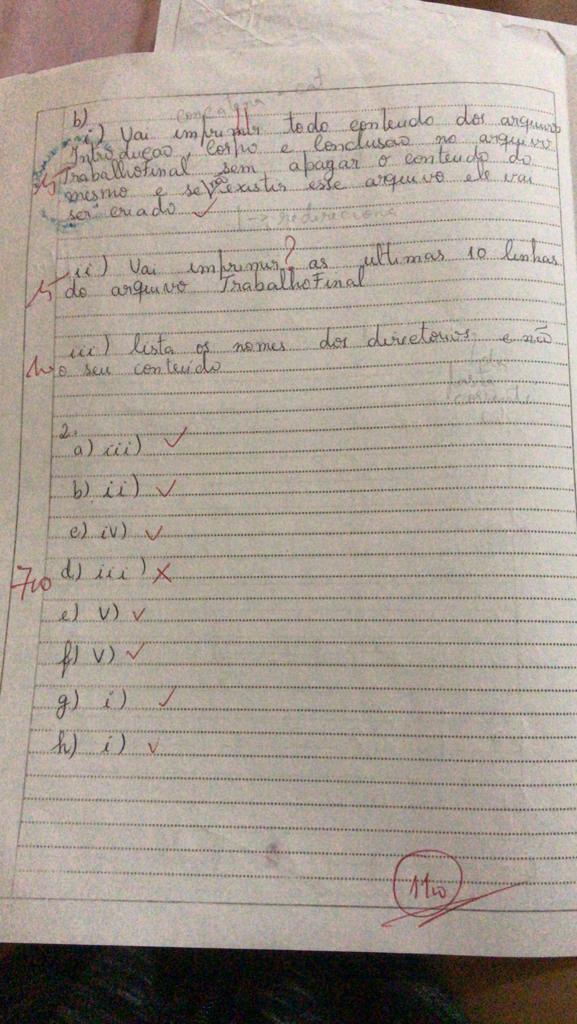 b)
i) Vai imprimir todo conteudo dos arquivos
Introduçao, Corpo e Conclusão no arquivo
TrabalhoFinal sem apagar o conteudo do
mesmo e se não existir esse arquivo ele vai
ser criado ✓
→ redireciona
ii) Vai imprimir ? as ultimas 10 linhas
do arquivo TrabalhoFinal
iii) lista os nomes dos directorios e não
o seu conteúdo
2.
a) iii) ✓
b) ii) ✓
c) iv) ✓
7,0 d) iii) ✗
e) V) ✓
f) V) ✓
g) i) ✓
h) i) ✓
11,0